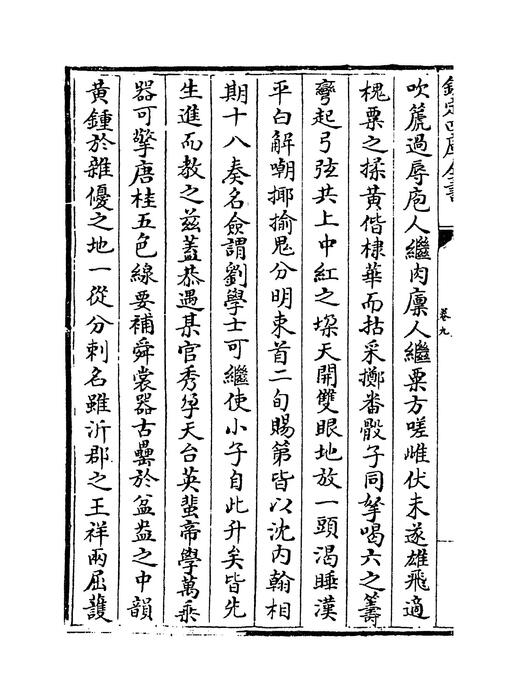 欽定四庫全書
卷九
吹篪過辱庖人繼肉廩人繼粟方嗟雌伏未遂雄飛適
槐粟之揉黃偕棣華而拈采擲畨骰子同拏喝六之籌
彎起弓弦共上中紅之垜天開雙眼地放一頭渴睡漢
平白解嘲揶揄鬼分明束首二旬賜第皆以沈内翰相
期十八奏名僉謂劉學士可繼使小子自此升矣皆先
生進而教之兹蓋恭遇某官秀孕天台英蜚帝學萬乘
器可擎唐桂五色線要補舜裳器古罍於盆盎之中韻
黃鍾於雜優之地一從分刺名雖沂郡之王祥兩屈䕶